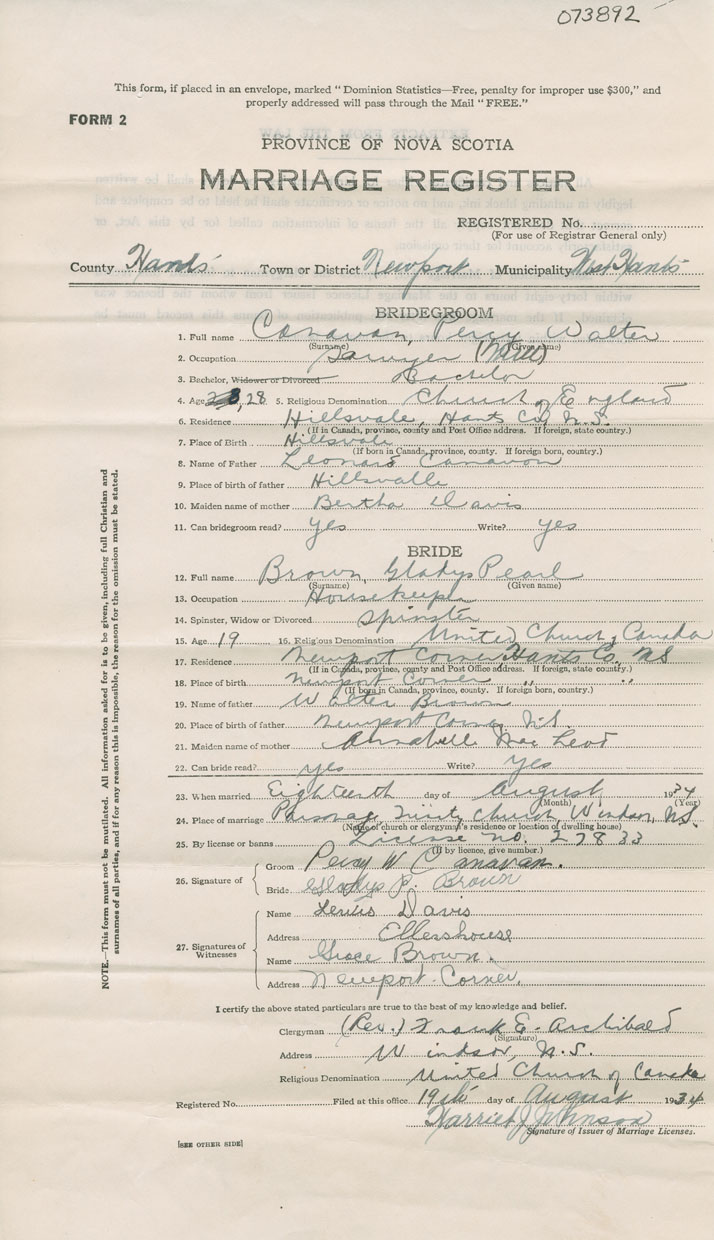 073892
This form, if placed in an envelope, marked "Dominion Statistics—Free, penalty for improper use $300," and
properly addressed will pass through the Mail "FREE."
FORM 2
PROVINCE OF NOVA SCOTIA
MARRIAGE REGISTER
REGISTERED No.
(For use of Registrar General only)
County Hants Town or District Newport Municipality West Hants
BRIDEGROOM
1. Full name Canavan, Percy Walter
(Surname) (Given name)
2. Occupation Sawyer (Mill)
3. Bachelor, Widower or Divorced Bachelor
4. Age 28 5. Religious Denomination Church of England
6. Residence Hillsvale, Hants Co. N.S.
(If in Canada, province, county and Post Office address. If foreign, state country.)
7. Place of Birth Hillsvale
(If born in Canada, province, county. If foreign born, country.)
8. Name of Father Leonard Canavan
9. Place of birth of father Hillsvalle
10. Maiden name of mother Bertha Davis
11. Can bridegroom read? yes Write? yes
BRIDE
12. Full name Brown, Gladys Pearl
(Surname) (Given name)
13. Occupation Housekeeper
14. Spinster, Widow or Divorced Spinster
15. Age 19 16. Religious Denomination United Church of Canada
17. Residence Newport Corner, Hants Co. NS
(If in Canada, province, county and Post Office address. If foreign, state country.)
18. Place of birth Newport Corner " "
(If born in Canada, province, county. If foreign born, country.)
19. Name of father Walter Brown
20. Place of birth of father Newport Corner N.S.
21. Maiden name of mother Annabell MacLeod
22. Can bride read? yes Write? yes
23. When married Eighteenth day of August 1934
(Month) (Year)
24. Place of marriage Parsonage Trinity Church, Windsor, N.S.
(Name of church or clergyman's residence or location of dwelling house)
25. By license or banns License no. 27833
(If by licence, give number.)
26. Signature of
Groom Percy W Canavan.
Bride Gladys P. Brown
27. Signatures of Witnesses
Name Lewis Davis
Address Ellershouse
Name Grace Brown.
Address Newport Corner.
I certify the above stated particulars are true to the best of my knowledge and belief.
Clergyman (Rev.) Frank E. Archibald
(Signature)
Address Windsor, N.S.
Religious Denomination United Church of Canada
Registered No. Filed at this office 19th day of August 1934
Harriet J Johnson
Signature of Issuer of Marriage Licenses.
[SEE OTHER SIDE]
NOTE.—This form must not be mutilated. All information asked for is to be given, including full Christian and
surnames of all parties, and if for any reason this is impossible, the reason for the omission must be stated.